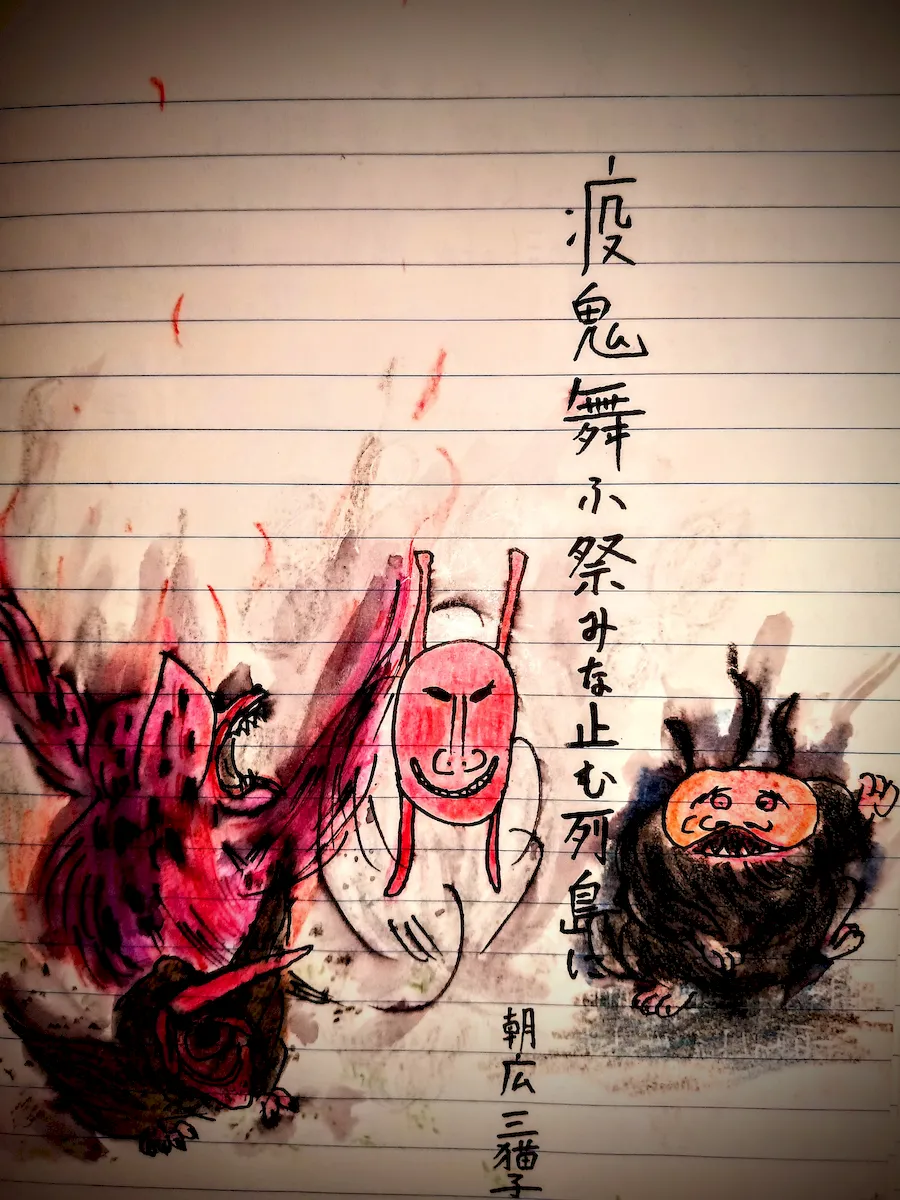 疫鬼舞ふ祭みな止む列島に
朝広三猫子